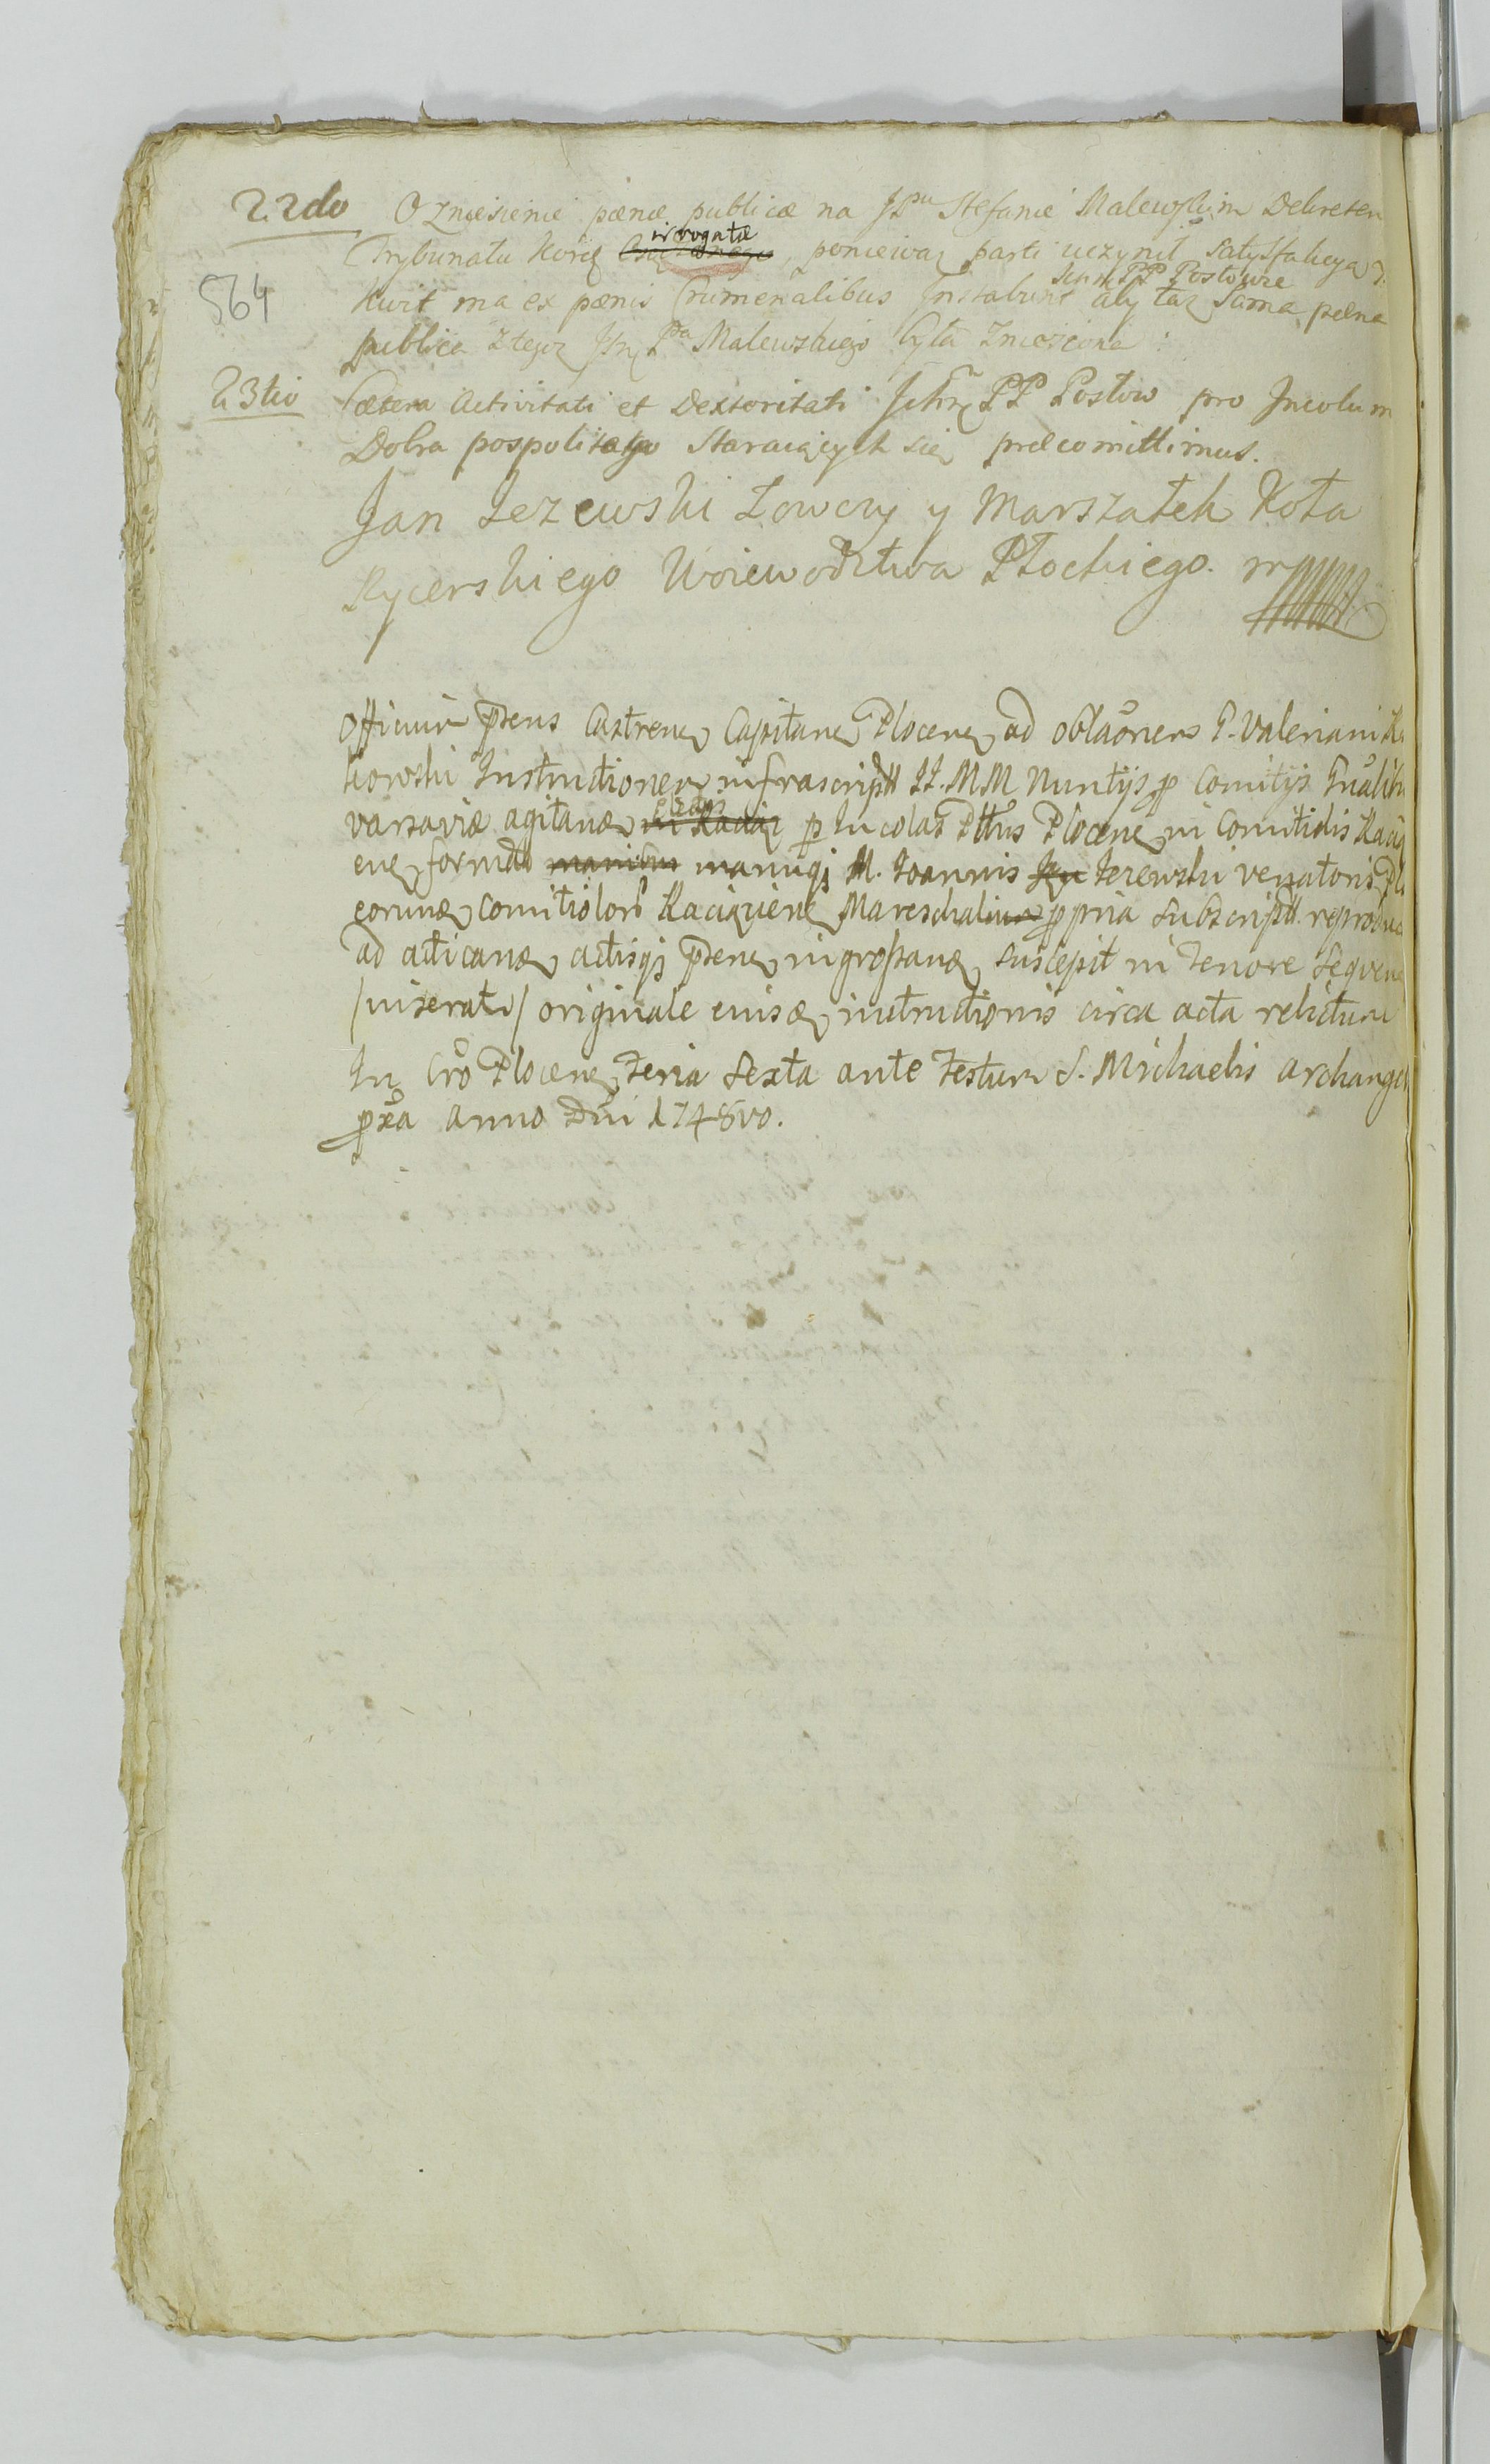 22do O Zniesienie pænæ publicæ na JPanu Stefanie Malewskim Dekretem
Trybunału Kor irrogatæ, poniewaz parti uczynił Satysfakcyą y
564
Kwit ma ex pænis Crumenalibus Instabunt Ichm PP Posłowie aby taz Sama pæna
publica z tegoz Jm Pa Malewskiego była Zniesiona
23tio Cætera Activitati et Dexteritati Ichm PP Posłow pro Incolum
Dobra pospolitego Staraiących się præcomittimus.
Jan Jezewski Łowczy y Marszałek Koła
Rycerskiego Woiewodztwa Płockiego. mp
Officium præns Castren Capitane Plocen ad oblaonem G. Valeriani
kowski Instructionem infrascriptt II. MM Nuntijs pro Comitijs Gnalibu
varsaviæ agitan electis p Incolas Pttus Plocen in Comitiolis Raciąz
en format manuq M. Joannis Jezewski venatoris Plo
eorundem Comitiolor Raciązien Mareschali ppria subscriptt. reproduc
ad acticand actisq præn ingrossand suscepit in tenore sequen
/inserat/ originale eiusd instructionis circa acta relictum
In Cro Plocen Feria Sexta ante Festum S. Michaelis Archangeli
pxa anno Dni 1748vo.